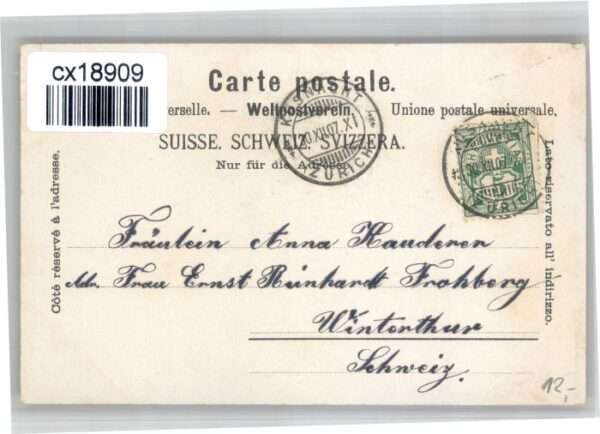 cx18909
Carte postale.
erselle. — Weltpostverein. Unione postale universale.
SUISSE. SCHWEIZ. SVIZZERA.
Nur für die Adresse.
KÜSNACHT
20.XII.07.XI
(ZÜRICH)
Côté réservé à l'adresse.
Lato riservato all' indirizzo.
Fräulein Anna Hauderer
Adr. Frau Ernst Reinhardt Frohberg
Winterthur
Schweiz.
12,-